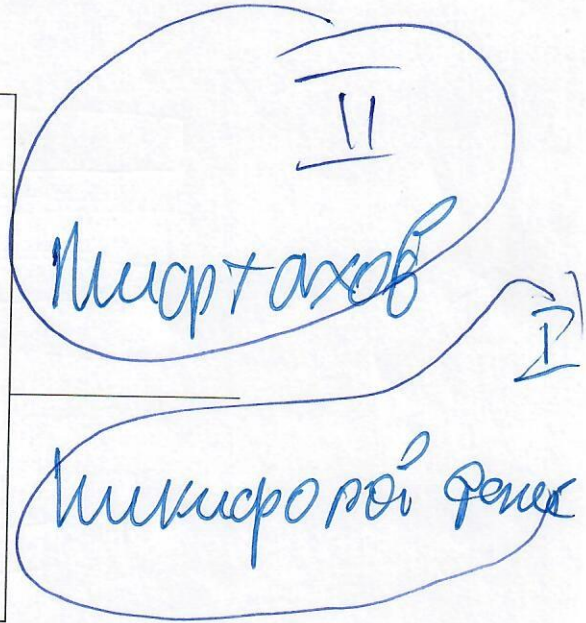 II
Мифтахов
I
Никифоров